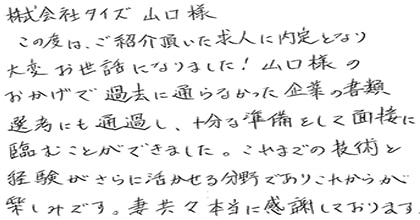 株式会社タイズ 山口様
この度は、ご紹介頂いた求人に内定となり
大変お世話になりました！山口様の
おかげで過去に通らなかった企業の書類
選考にも通過し、十分な準備をして面接に
臨むことができました。これまでの技術と
経験がさらに活かせる分野でありこれからが
楽しみです。妻共々本当に感謝しております